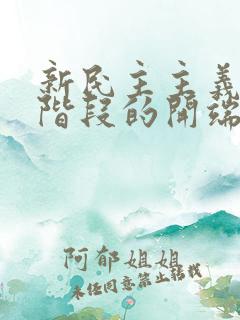 新民主主義
階段的開端
阿郁姐姐
未经同意禁止转载